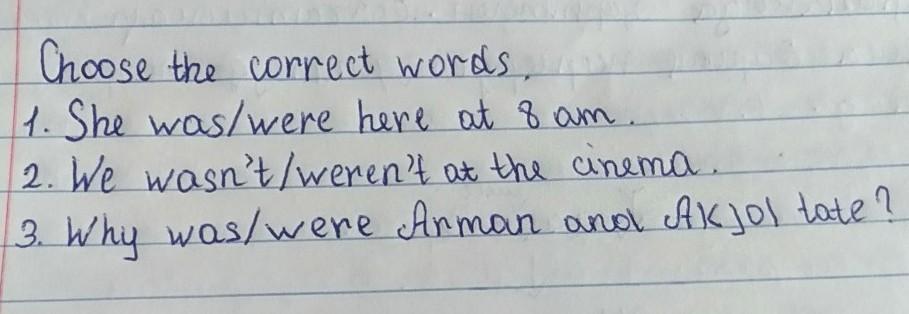 Choose the correct words.
1. She was/were here at 8 am.
2. We wasn't/weren't at the cinema.
3. Why was/were Arman and Akjol late?